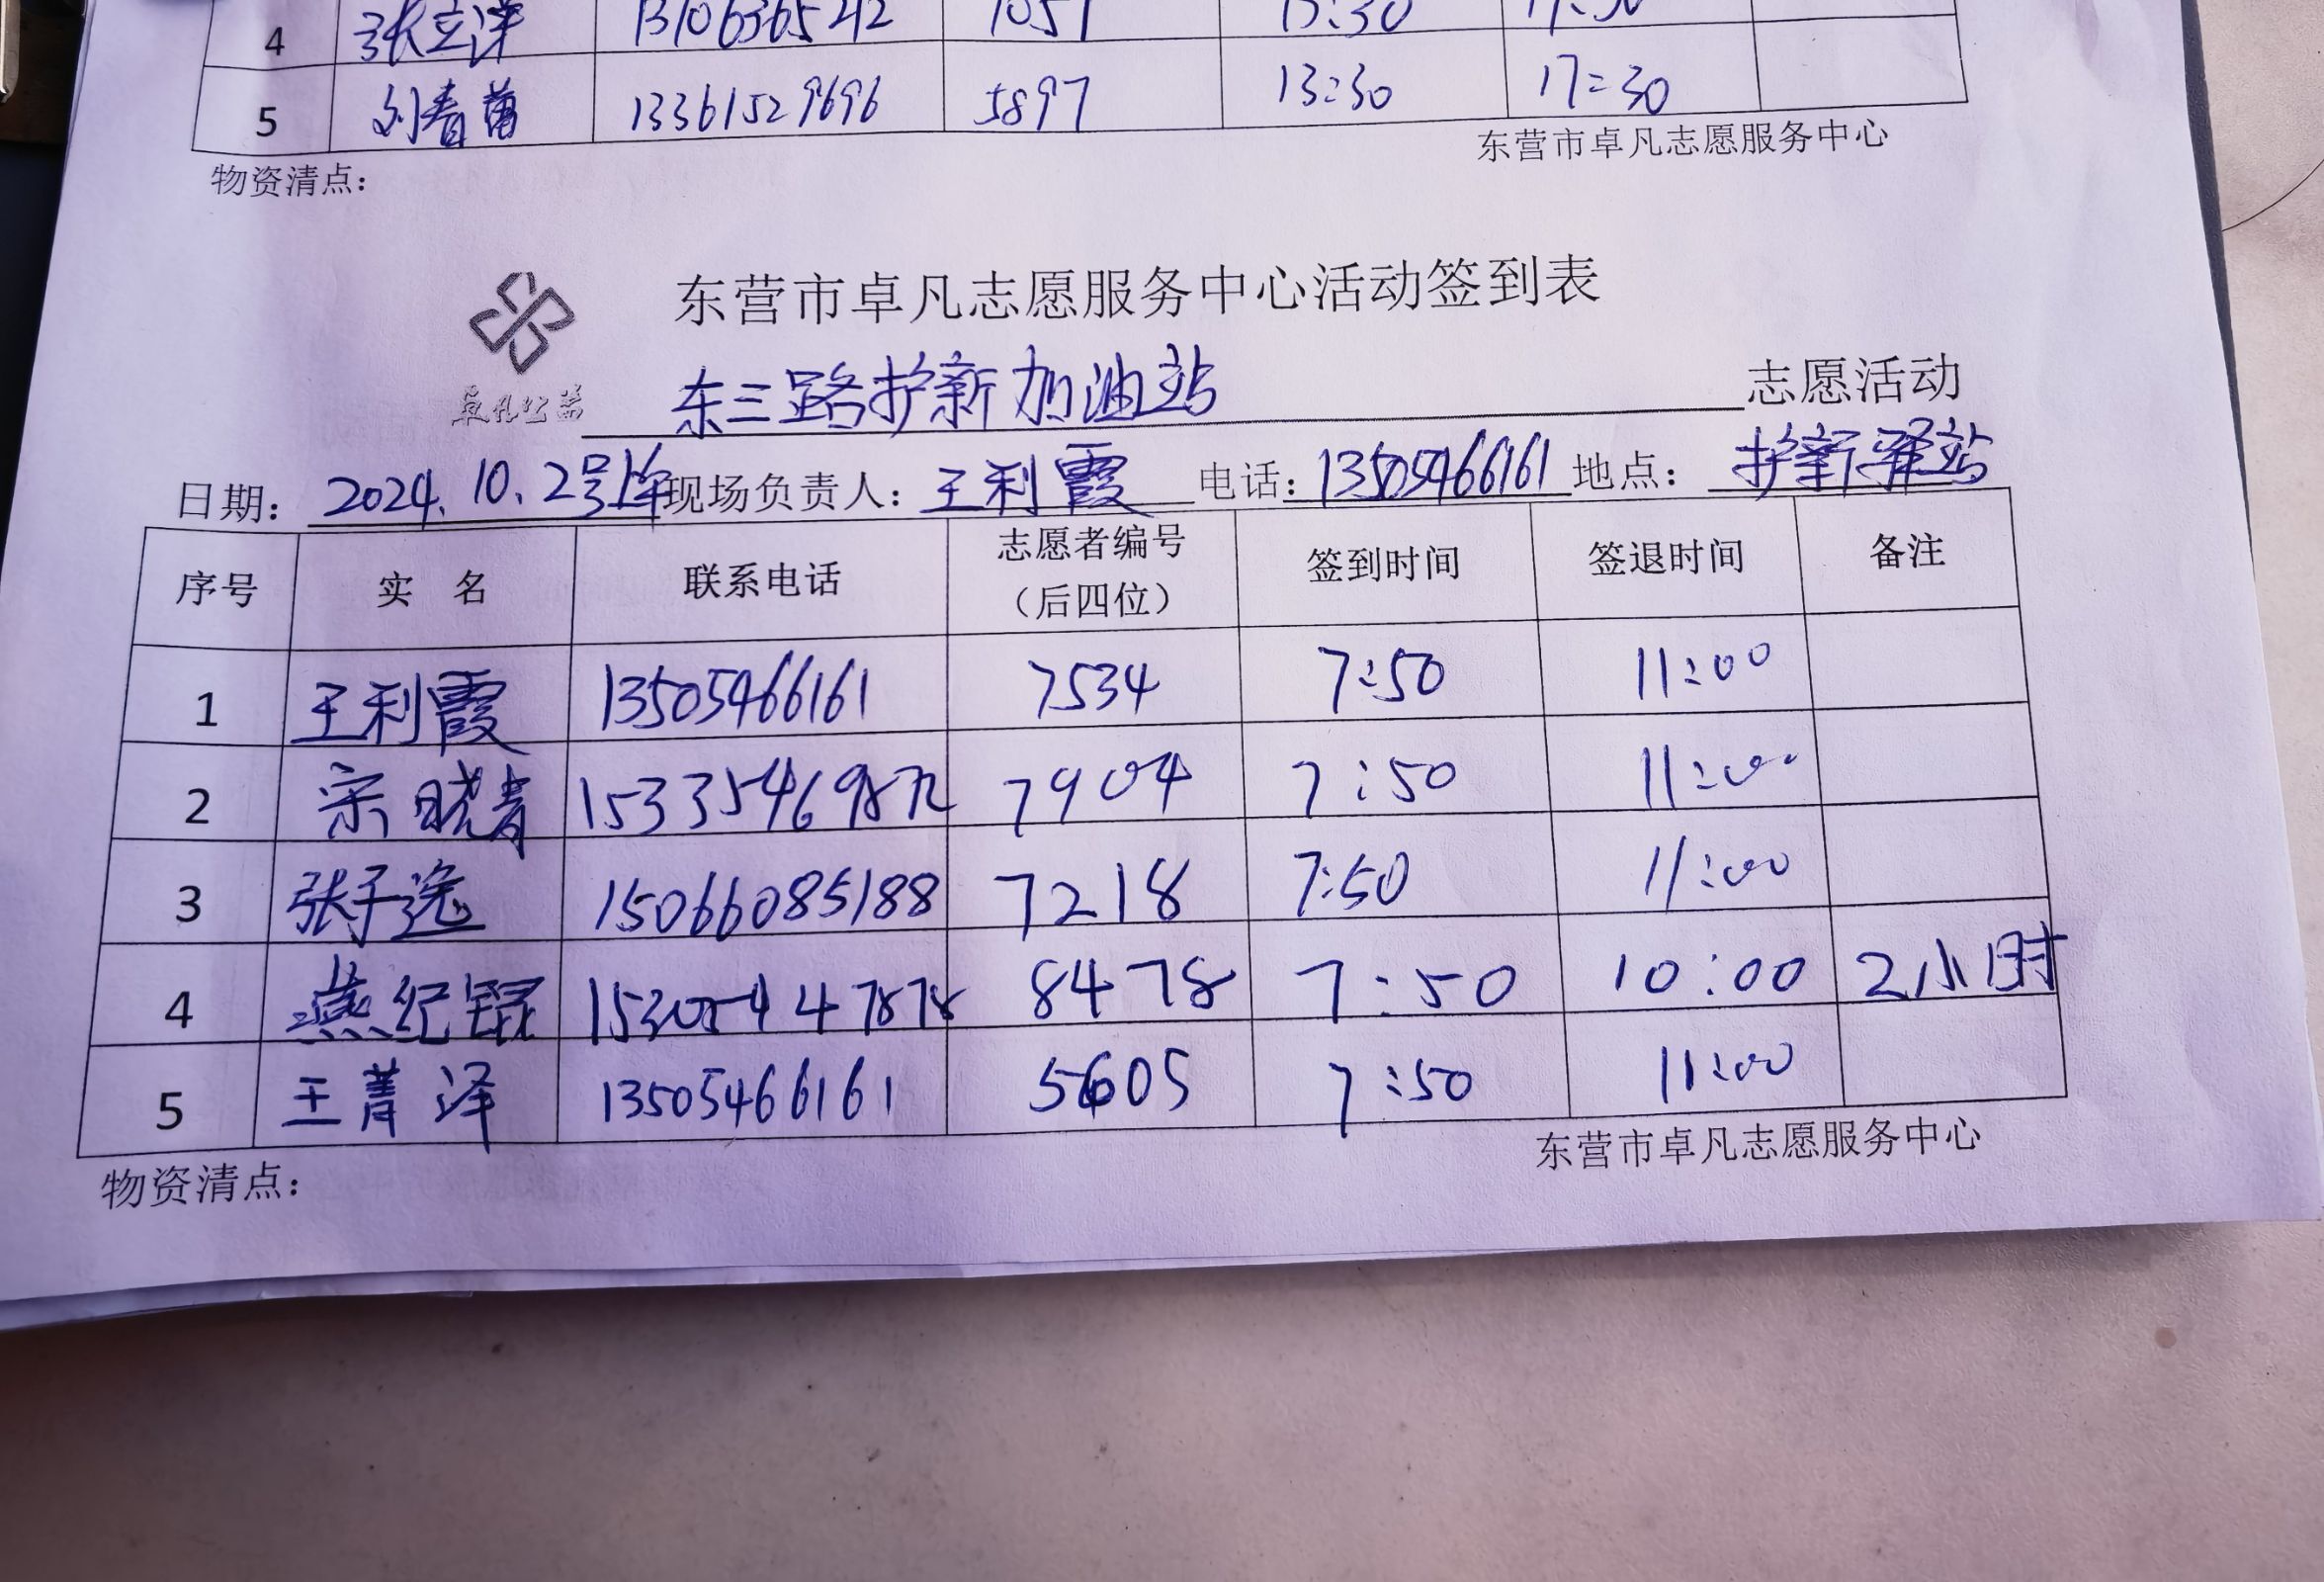 4 张立洋 13106365242 1051 13:30 17:30
5 刘春苗 13361529696 5897 13:30 17:30
物资清点： 东营市卓凡志愿服务中心
东营市卓凡志愿服务中心活动签到表
卓凡公益
东三路护新加油站 志愿活动
日期：2024.10.2号上午 现场负责人：王利霞 电话：13505466161 地点：护新驿站
序号 实 名 联系电话 志愿者编号（后四位） 签到时间 签退时间 备注
1 王利霞 13505466161 7534 7:50 11:00
2 宋晓青 7904 7:50 11:00
3 张子逸 15066085188 7218 7:50 11:00
4 燕纪 8478 7:50 10:00 2小时
5 王菁泽 13505466161 5605 7:50 11:00
物资清点： 东营市卓凡志愿服务中心